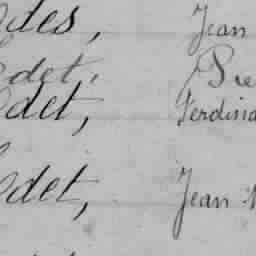 des, Jean
det, Pie
det, Ferdina
det, Jean